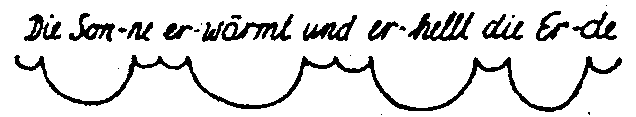 Die Son-ne er-wärmt und er-hellt die Er-de